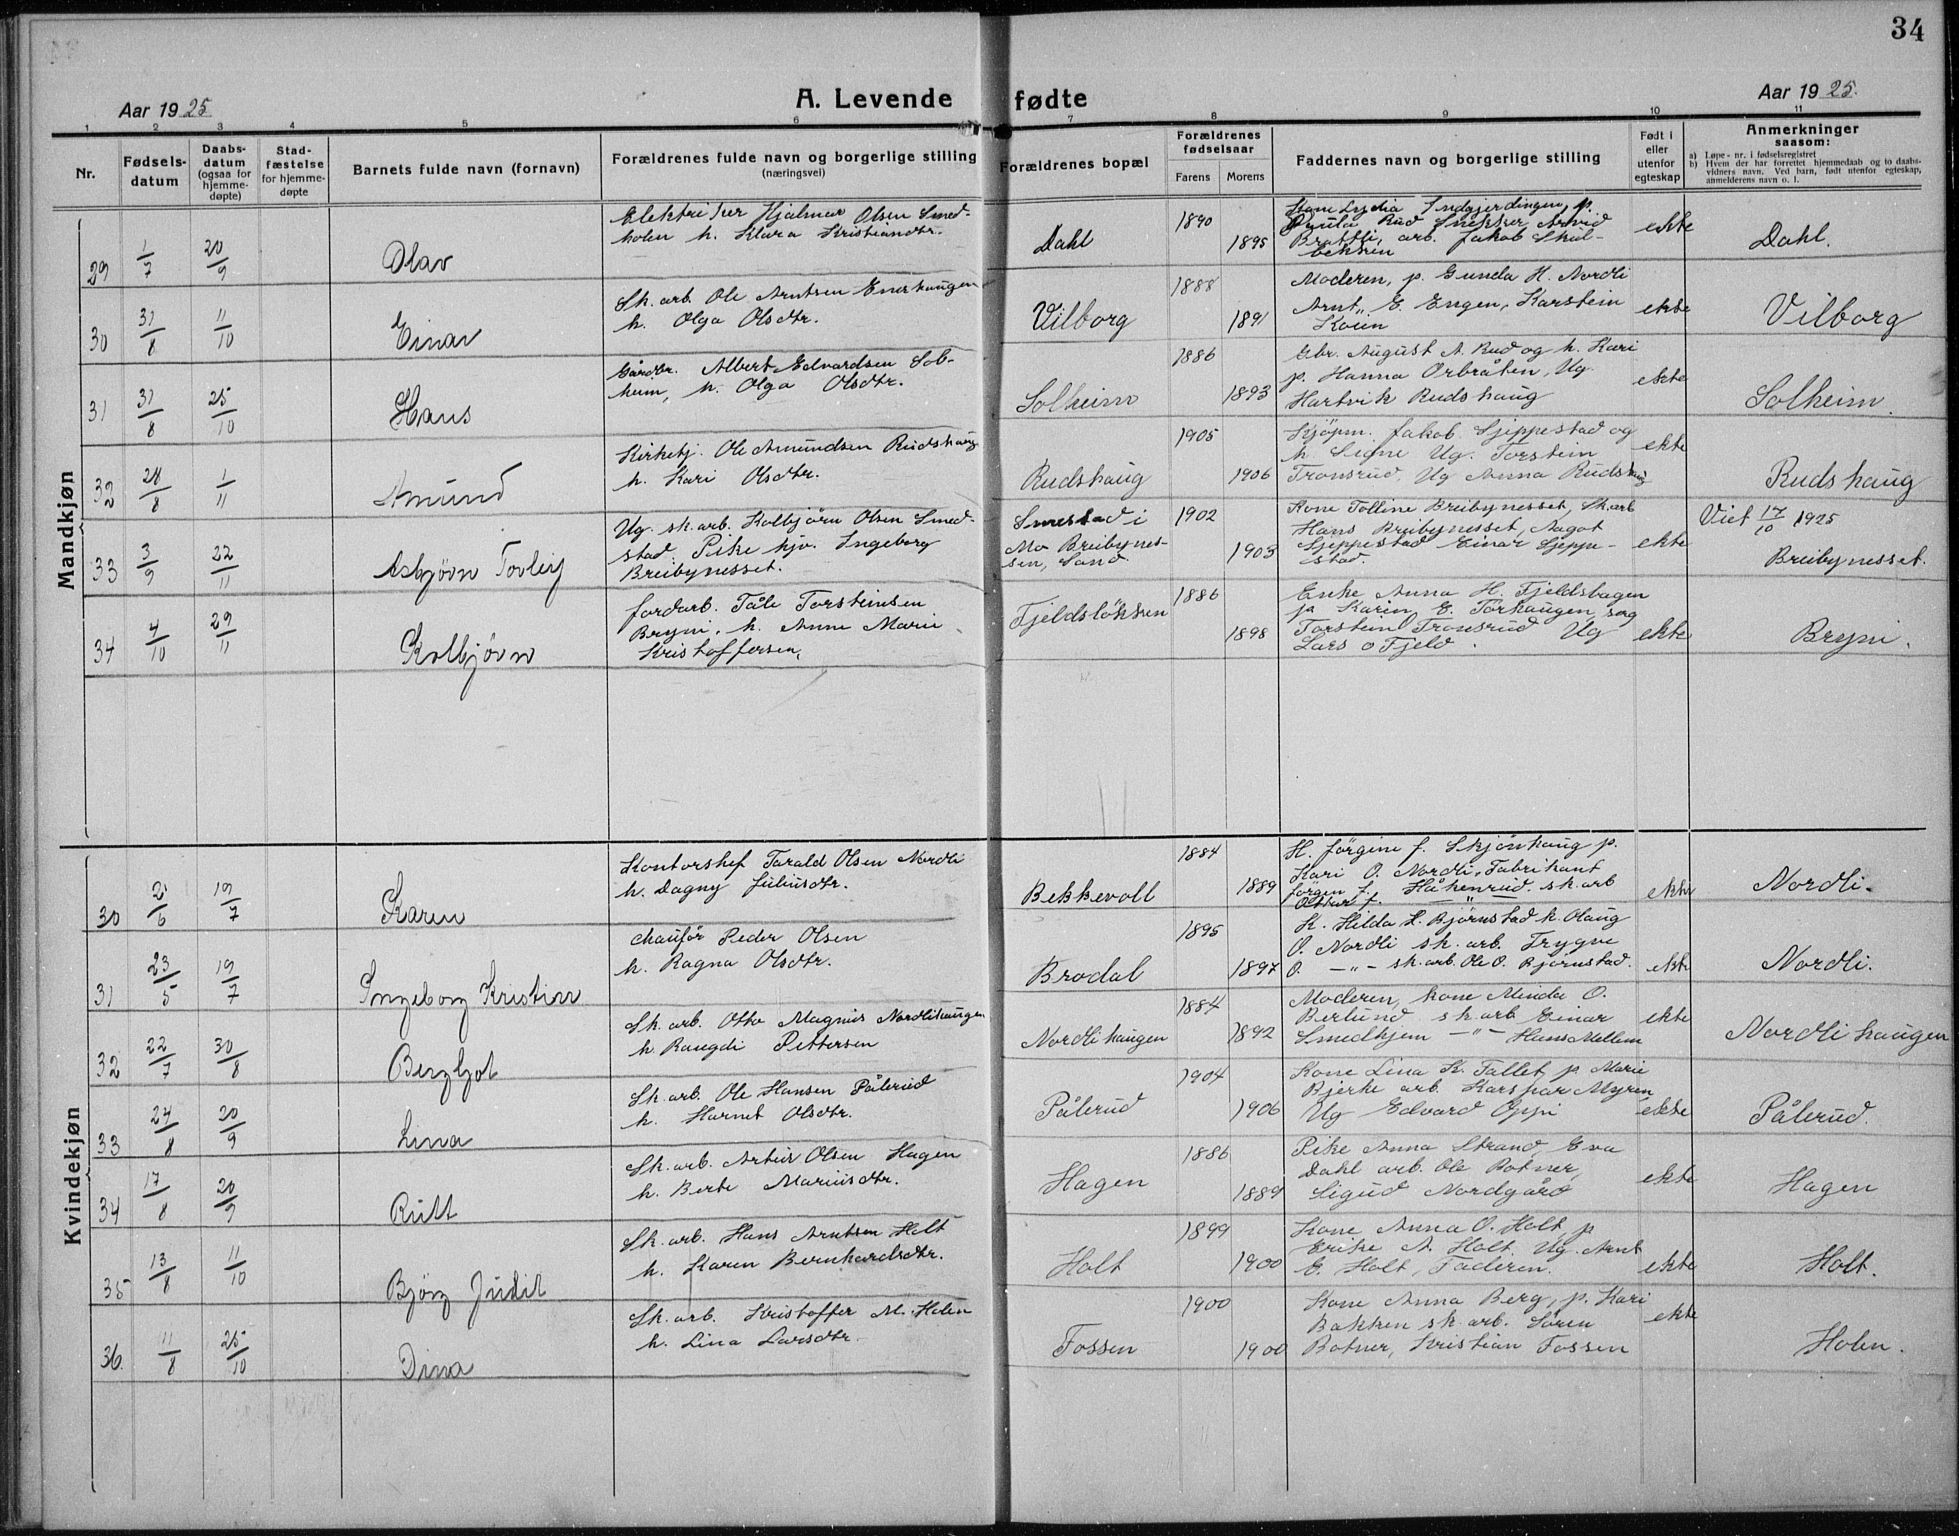 34
Aar 1925
A. Levende fødte
Aar 1925.
1 2 3 4 5 6 7 8 9 10 11
Nr.
Fødsels-
datum
Daabs-
datum
(ogsaa for
hjemme-
døpte)
Stad-
fæstelse
for hjemme-
døpte
Barnets fulde navn (fornavn)
Forældrenes fulde navn og borgerlige stilling
(næringsvei)
Forældrenes bopæl
Forældrenes
fødselsaar
Farens Morens
Faddernes navn og borgerlige stilling
Født i
eller
utenfor
egteskap
Anmerkninger
saasom:
a) Løpe-nr. i fødselsregistret
b) Hvem der har forrettet hjemmedaab og to daabs-
vidners navn. Ved barn, født utenfor egteskap,
anmelderens navn o. l.
Mandkjøn
29 1/7 20/9 Olav
Elektriker Hjalmar Olsen Smed-
holen h. Klara Kristiansdtr.
Dahl
1890 1895
Kone Lydia Indgjerdingen, p.
Rud Snekker Arvid
Bratli, arb. Jakob Skul-
bekken
ekte
Dahl.
30 31/8 11/10 Einar
Sk. arb. Ole Arntsen Enerhaugen
h. Olga Olsdtr.
Vilborg
1888 1891
Moderen, p. Gunda H. Nordli
Arnt E. Engen, Karstein
ekte
Vilborg
31 31/8 25/10 Hans
Gårdbr. Albert Edvardsen Sol-
heim, h. Olga Olsdtr.
Solheim
1886 1893
Gbr. August A. Rud og h. Kari
p. Hanna Orbråten, Ug
Hartvik Rudshaug
ekte
Solheim.
32 28/8 1/11 Amund
Kirketj. Ole Amundsen Rudshaug
h. Kari Olsdtr.
Rudshaug
1905 1906
Kjøpm. Jakob Sjeppestad og
h. Signe Ug. Torstein
Tronsrud, Ug Anna Rudshaug
ekte
Rudshaug
33 3/9 22/11 Asbjørn Torleif
Ug. sk. arb. Kolbjörn Olsen Smed-
stad Pike hjv. Ingeborg
Breibynesset.
Smestad i
Mo Breibynes-
sen, Sand.
1902 1903
Kone Tolline Breibynesset, Sk. arb
Hans Breibynesset, Aagot
Sjeppestad Einar Sjeppe-
stad.
ekte
Viet 17/10 1925
Breibynesset.
34 4/10 29/11 Kolbjørn
Jordarb. Tåle Torsteinsen
Bryni, h. Anne Marie
Kristoffersen,
Fjeldslökken
1886 1898
Enke Anna H. Fjeldshagen
p. Karin E. Torhaugen, sag
Torstein Tronsrud Ug
Lars O Fjeld.
ekte
Bryni.
Kvindekjøn
30 2/6 19/7 Karen
Kontorshef Tarald Olsen Nordli
h. Dagny Juliusdtr.
Bekkevoll
1884 1889
H. Jörgine J. Skjönhaug p.
Kari O. Nordli, Fabrikant
Jörgen J. Håkenrud sk. arb
Ottar J. — " —
ekte
Nordli.
31 23/5 19/7 Ingeborg Kristine
Chauför Peder Olsen
h. Ragna Olsdtr.
Brodal
1895 1897
K. Hilda H. Björnstad h. Olaug
O. Nordli sk. arb. Trygve
O. — " — sk. arb. Ole O. Björnstad.
ekte
Nordli.
32 22/7 30/8 Bergljot
Sk. arb. Otto Magnus Nordlihaugen
h. Raugdi Pettersen
Nordlihaugen
1884 1892
Moderen, kone Minda O.
Berlund sk. arb Einar
Smedhjem — " — Hans Mellem
ekte
Nordlihaugen
33 24/8 20/9 Lina
Sk. arb. Ole Hansen Pålerud
h. Harnet Olsdtr.
Pålerud
1904 1906
Kone Lina K. Fallet p. Marie
Bjerke arb. Karspar Myren
Ug Edvard Oppi
ekte
Pålerud.
34 17/8 20/9 Rutt
Sk. arb. Artur Olsen Hagen
h. Berte Mariusdtr.
Hagen
1886 1889
Pike Anna Strand, Eva
Dahl arb. Ole Rotner,
Sigud Nordgård
ekte
Hagen
35 13/8 11/10 Bjørg Judit
Sk. arb. Hans Arntsen Holt
h. Karen Bernhardsdtr.
Holt
1899 1900
Kone Anna O. Holt p
Erike A. Holt. Ug. Arnt
E. Holt, Faderen.
ekte
Holt.
36. 11/8 25/10 Dina
Sk. arb. Kristoffer M. Holen
h. Lina Larsdtr.
Fossen
1900 1900
Kone Anna Berg, p. Kari
Bakken sk. arb. Sören
Rotner, Kristian Fossen
ekte
Holen.